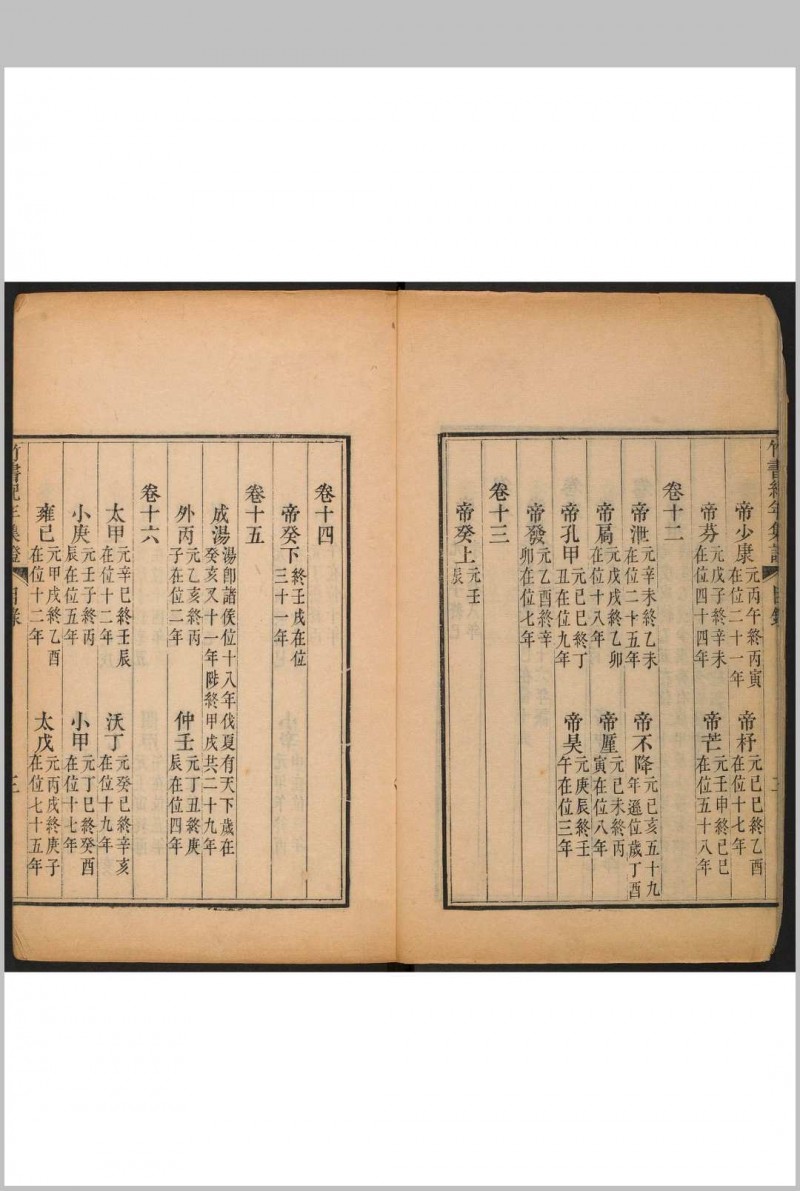 竹書紀年集證 目錄
帝少康 元丙午終丙寅在位二十一年 帝杼 元己巳終乙酉在位十七年
帝芬 元戊子終辛未在位四十四年 帝芒 元壬申終己巳在位五十八年
卷十二
帝泄 元辛未終乙未在位二十五年 帝不降 元己亥五十九年遜位歲丁酉
帝扃 元戊戌終乙卯在位十八年 帝廑 元己未終丙寅在位八年
帝孔甲 元己巳終丁丑在位九年 帝昊 元庚辰終壬午在位三年
帝發 元乙酉終辛卯在位七年
卷十三
帝癸上 元壬辰
卷十四
帝癸下 終壬戌在位三十一年
卷十五
成湯 湯卽諸侯位十八年伐夏有天下歲在癸亥又十一年陟終甲戌共二十九年
外丙 元乙亥終丙子在位二年 仲壬 元丁丑終庚辰在位四年
卷十六
太甲 元辛巳終壬辰在位十二年 沃丁 元癸巳終辛亥在位十九年
小庚 元壬子終丙辰在位五年 小甲 元丁巳終癸酉在位十七年
雍己 元甲戌終乙酉在位十二年 太戊 元丙戌終庚子在位七十五年
竹書紀年集證 目錄 三